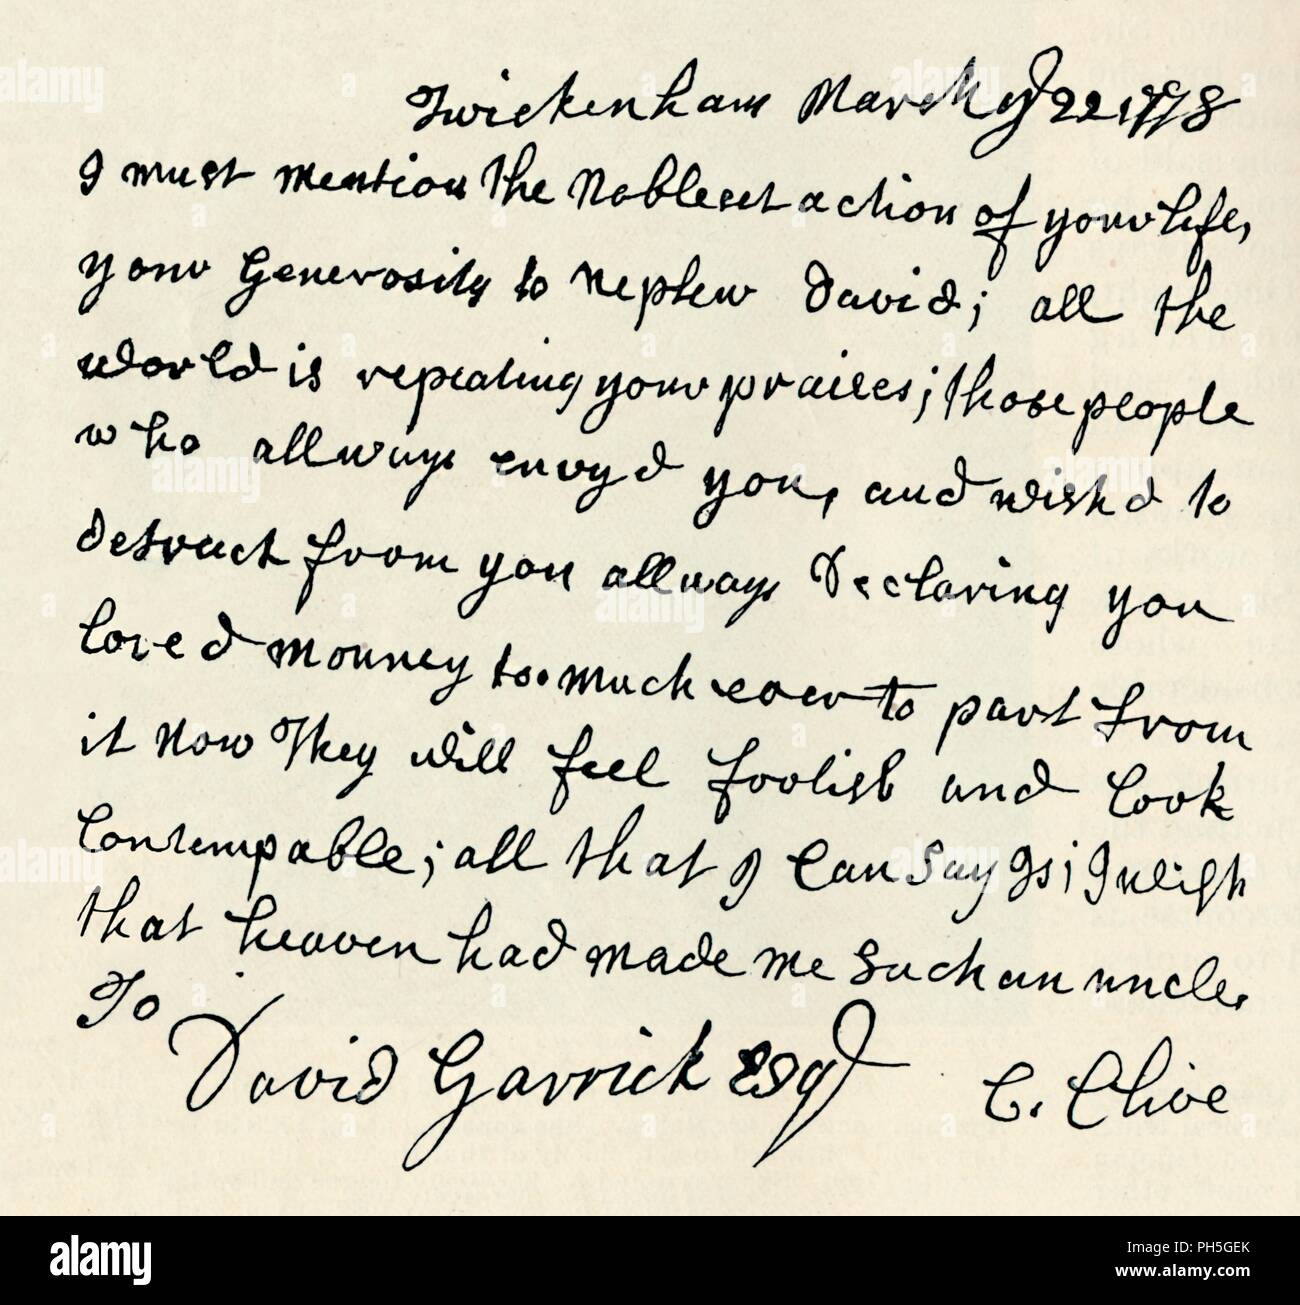 Twickenham March ye 22 1778
I must mention the Nobleest action of your life,
your Generosity to Nephew David; all the
world is repeating your praises; those people
who allways envyd you, and wishd to
detract from you allways Declaring you
loved Mouney too much ever to part from
it now They will feel foolish and look
Contempable; all that I can say Is; I wish
that heaven had made me such an uncle.
To
David Garrick Esqr C. Clive
alamy
Image ID: PH5GEK
www.alamy.com